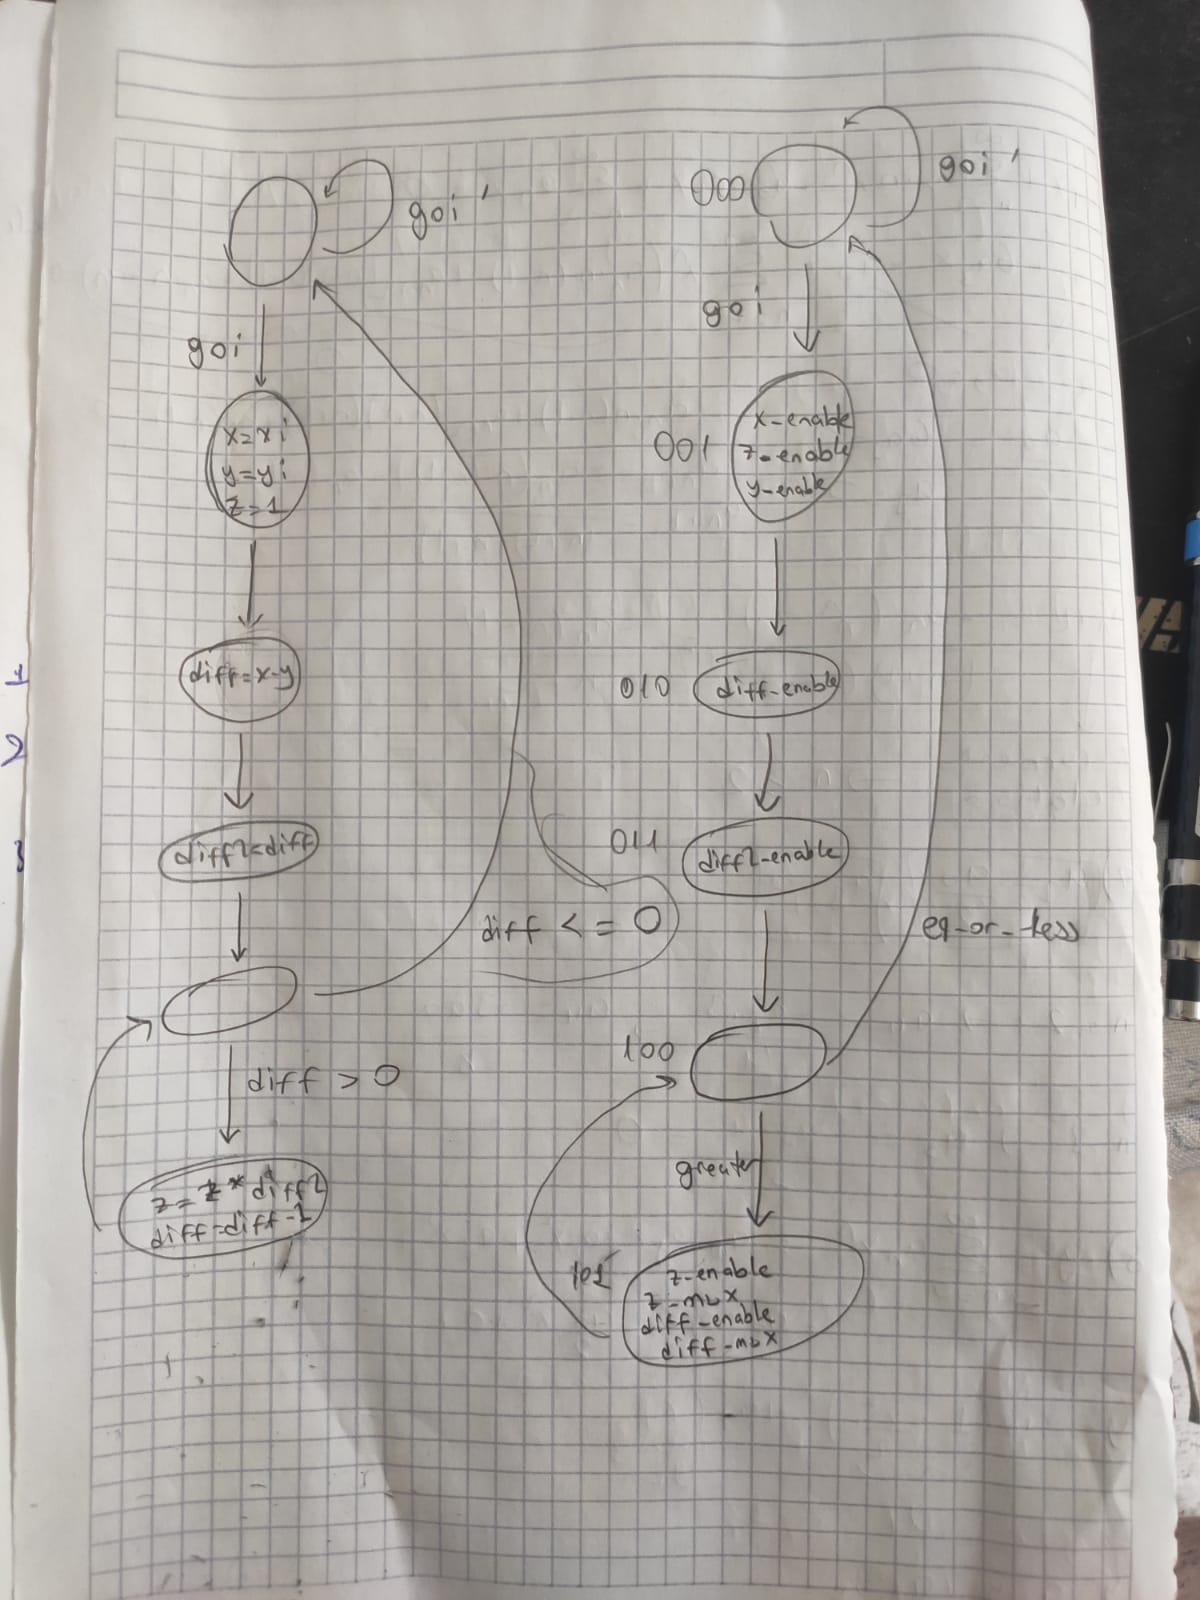 goi'
goi
x=xi
y=yi
z=1
diff=x-y
diff2=diff
diff <= 0
diff > 0
z=z*diff2
diff=diff-1
000
goi'
goi
001
x-enable
z-enable
y-enable
010
diff-enable
011
diff2-enable
eq-or-less
100
greater
101
z-enable
z-mux
diff-enable
diff-mux
1
2
3